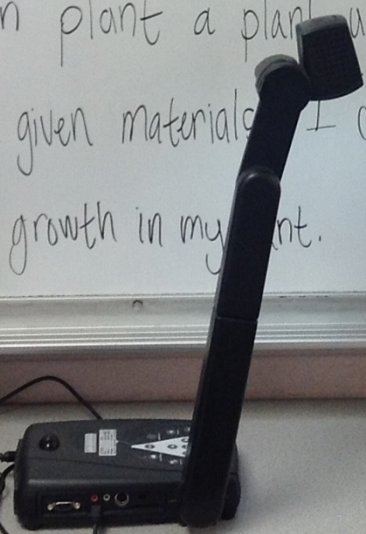 plant a plant
given materials I
growth in my